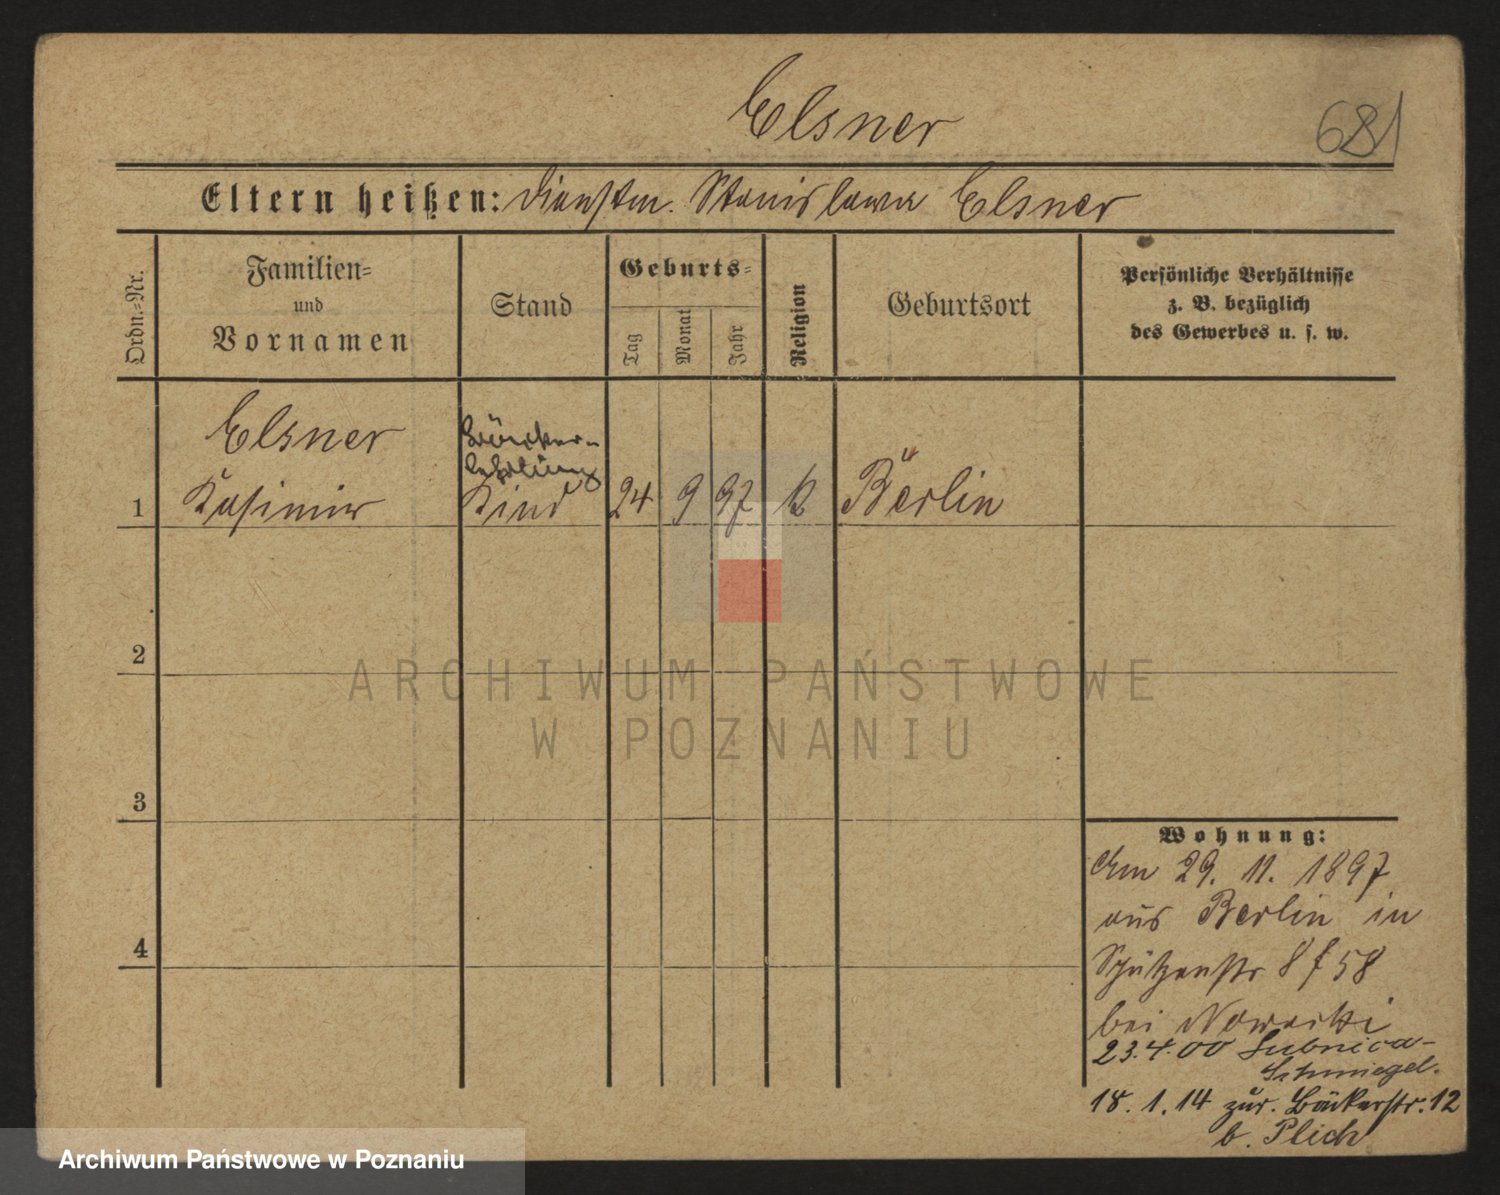 Elsner
681
Eltern heißen: Dienstm. Stanislawa Elsner
Ordn.-Nr.
Familien-
und
Vornamen
Stand
Geburts-
Tag
Monat
Jahr
Religion
Geburtsort
Persönliche Verhältnisse
z. B. bezüglich
des Gewerbes u. s. w.
Elsner
Bäcker-
lehrling
1 Kasimir Kind 24 9 97 k Berlin
2
3
4
ARCHIWUM PAŃSTWOWE
W POZNANIU
Wohnung:
Am 29. 11. 1897
aus Berlin in
Schützenstr 8 f 58
bei Nowacki
23.4.00 Lubnica-
Schmiegel.
18. 1. 14 zur. Bäckerstr. 12
b. Plich
Archiwum Państwowe w Poznaniu